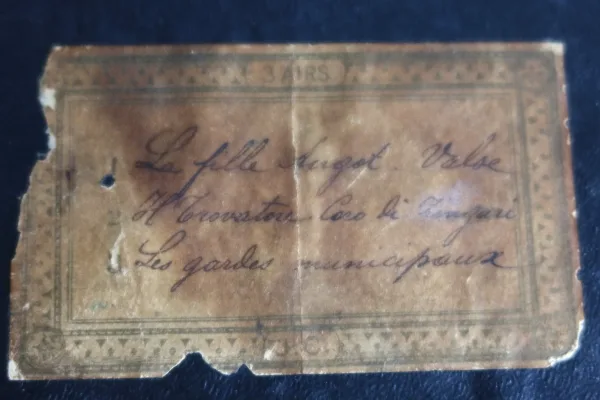 3 AIRS
1 La fille Angot. Valse
2 Il Trovatore Coro di Zingari
3 Les gardes municipaux